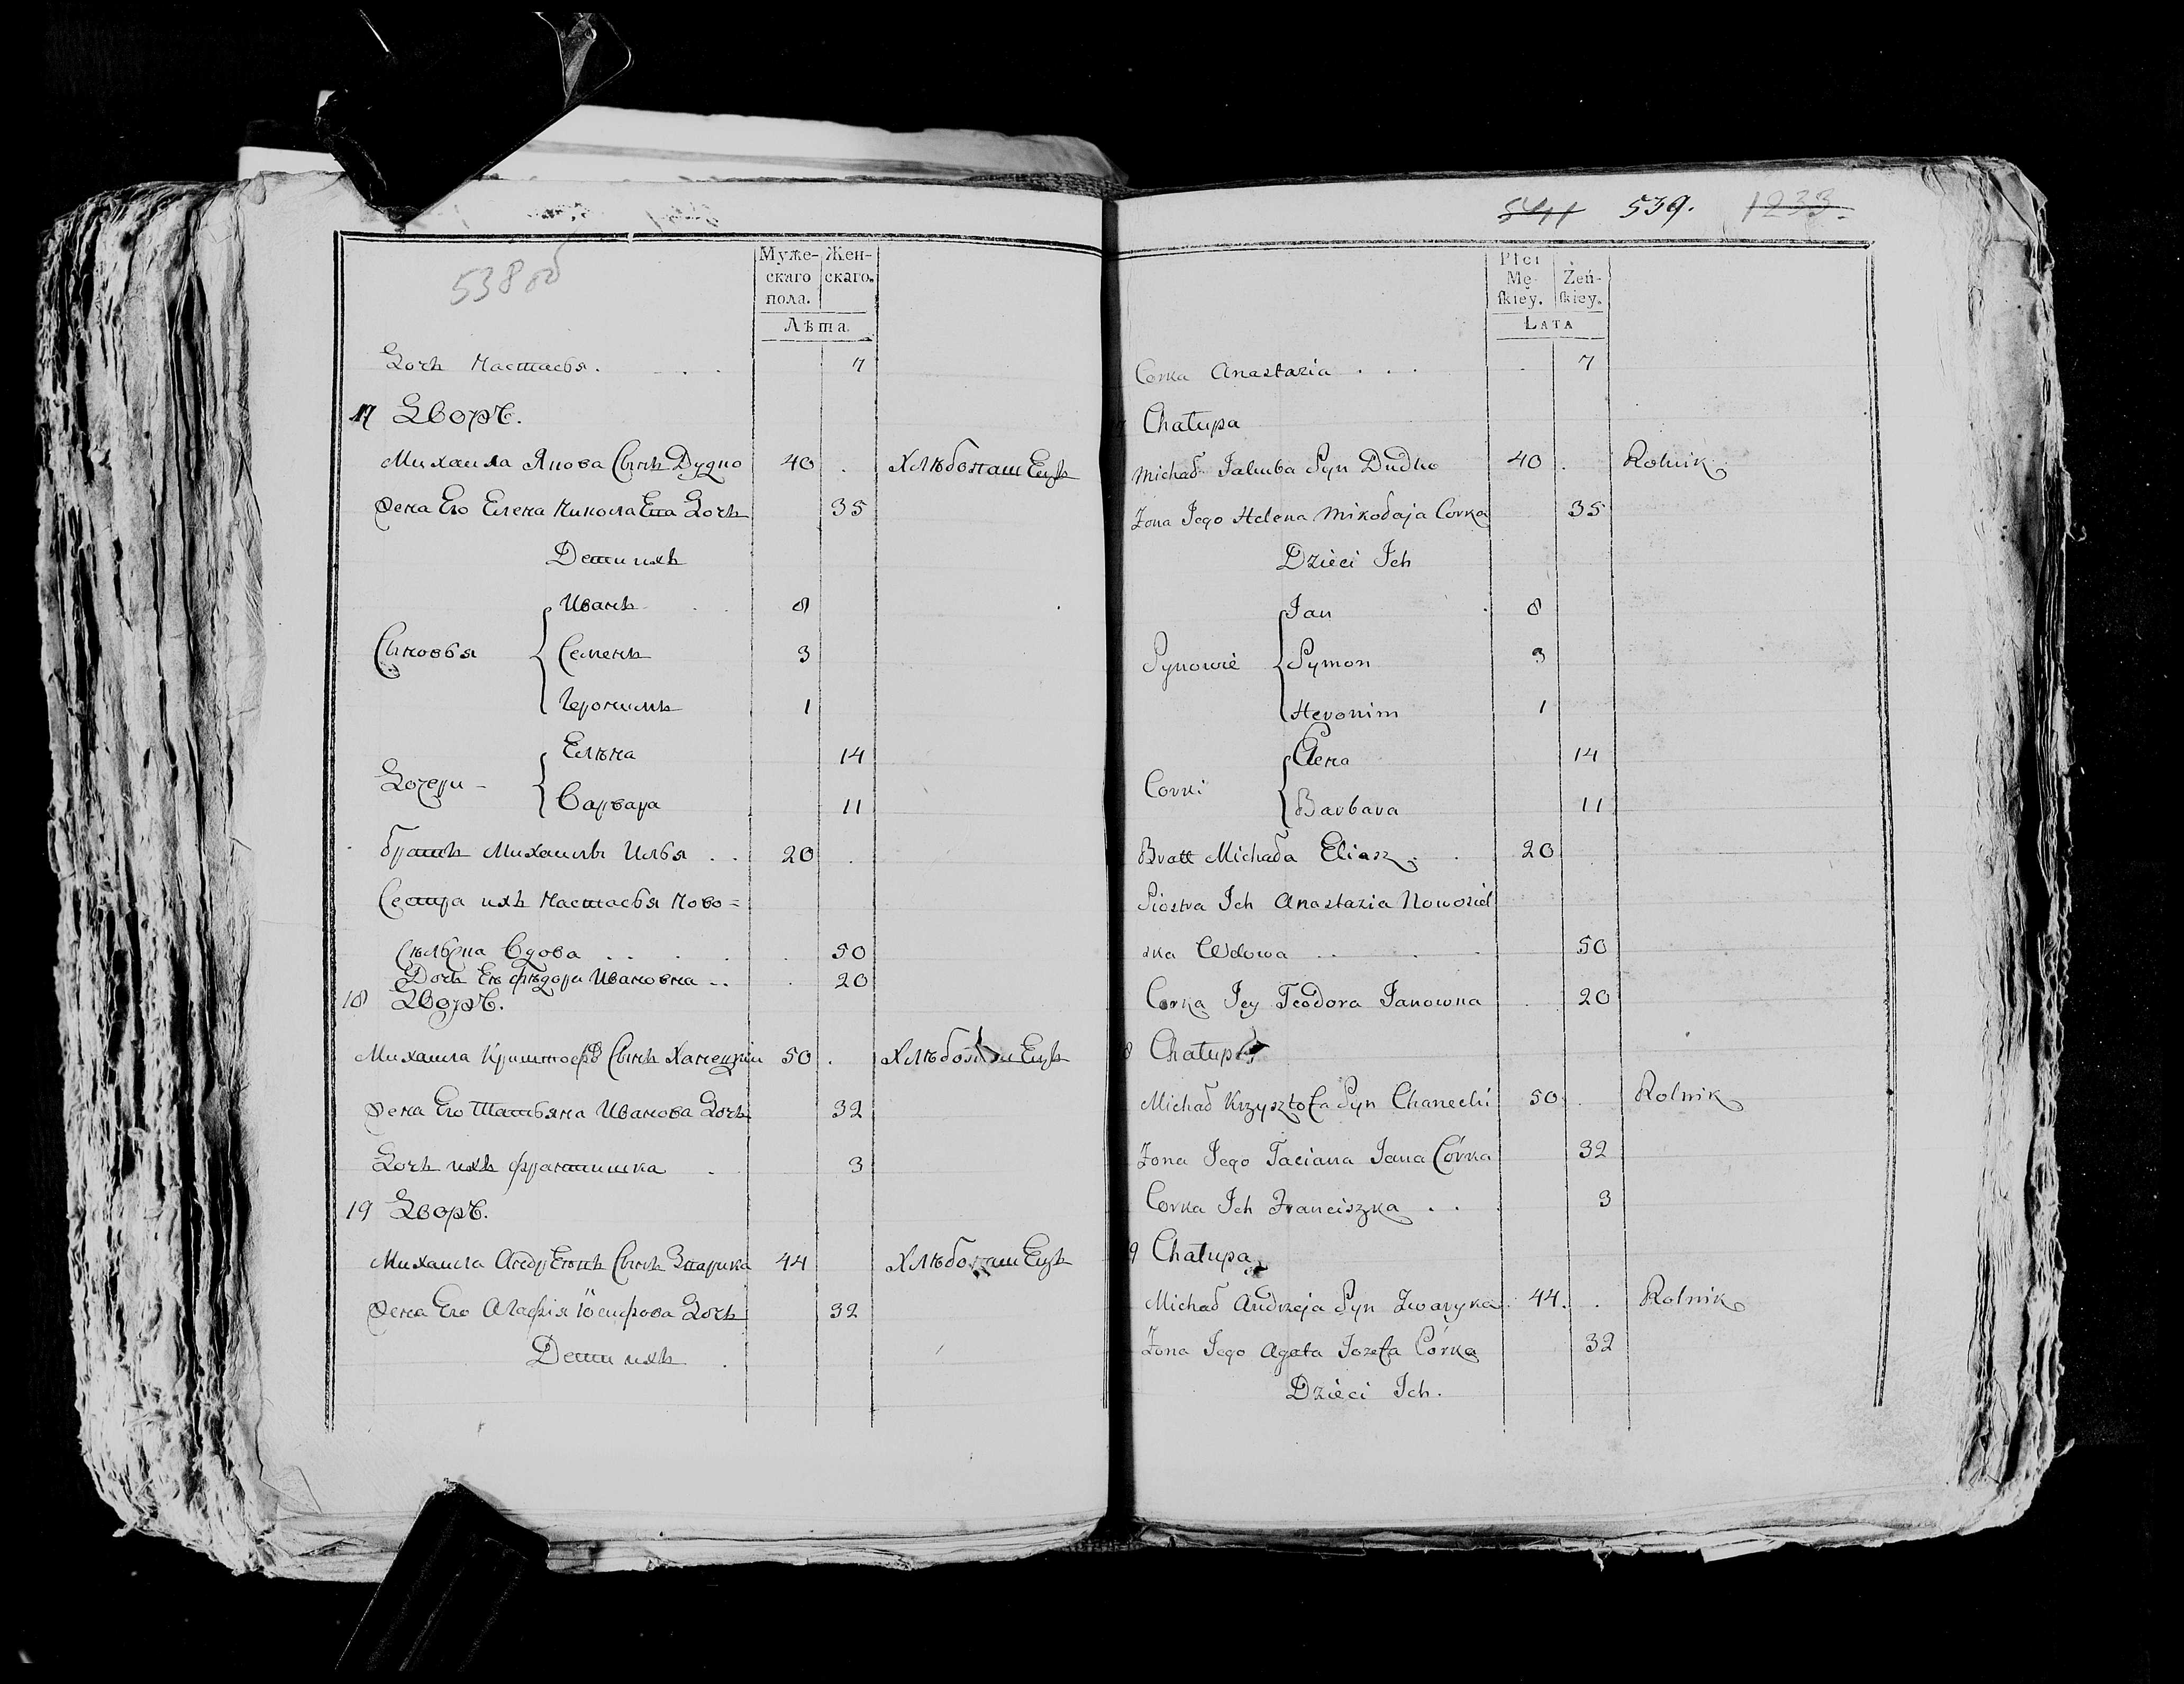 538 об
Муже-
скаго
пола.
Жен-
скаго.
Лѣта
Дочь Настасья . . . . 7
17 Дворъ.
Михаила Якова Сынъ Дудко 40 . ХлѣбопашЕцъ
Жена Его Елена НиколаЕва Дочь 35
Дети ихъ
Сыновья
Иванъ . . 8
Семенъ 3
Героnимъ 1
Дочери -
Елѣна 14
Варвара 11
братъ Михаилы Илья . . 20 .
Сестра ихъ Настасья Ново=
сѣльска Вдова . . . . . 50
Дочь Ея Фѣдора Ивановна . . . 20
18 Дворъ.
Михаила Криштофа Сынъ Ханецкіи 50 . ХлѣбопашЕцъ
Жена Его Татьяна Иванова Дочь 32
Дочь ихъ Франтишка . 3
19 Дворъ.
Михаила АндрЕевъ Сынъ Зварика 44 ХлѣбопашЕцъ
Жена Его Агафія Іосифова Дочь 32
Дети ихъ .
5411 539. 1233.
Płci
Mę-
ſkiey.
Żeń-
ſkiey.
Lata
Corka Anastazia . . . . 7
7 Chałupa
Michał Jakuba Syn Dudko 40 . Rolnik
Zona Jego Helena Mikołaja Corka 35
Dzieci Ich
Synowie
Jan . 8
Symon 3
Heronim 1
Corki
Alena 14
Barbara 11
Bratt Michała Eliasz . . 20
Siostra Ich Anastazia Nowosiel
ska Wdowa . . . . 50
Corka Jey Teodora Janowna . 20
8 Chałupa
Michał Krzysztofa Syn Chanecki 50 . Rolnik
Zona Jego Taciana Jana Córka 32
Corka Ich Franciszka . . . 3
9 Chałupa
Michał Andrzeja Syn Zwaryka . 44 . . Rolnik
Zona Jego Agata Jozefa Córka 32
Dzieci Ich.